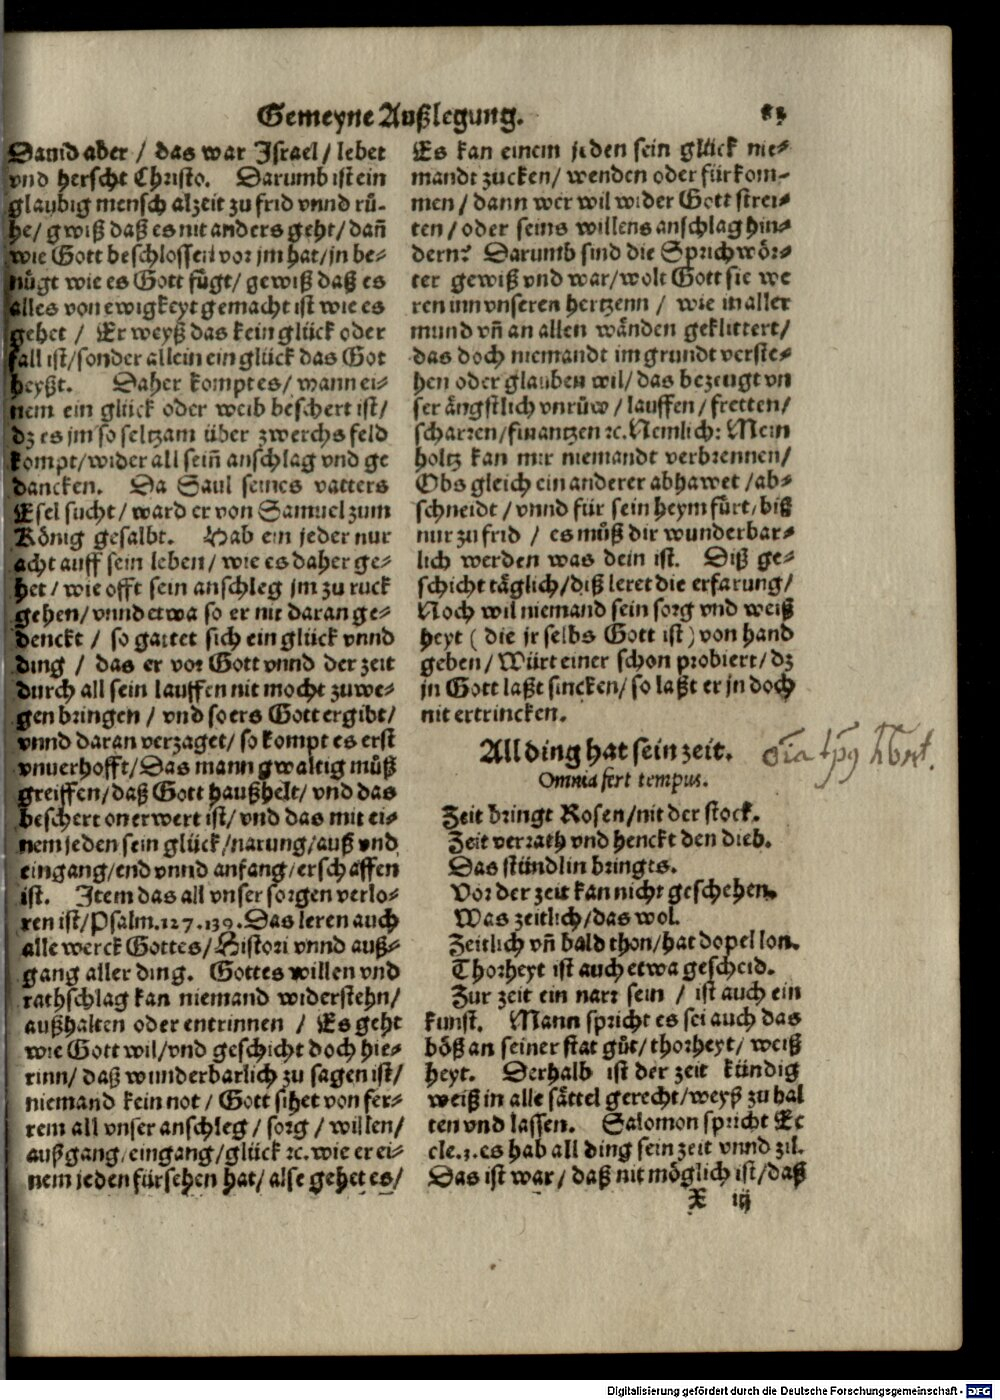 Gemeyne Außlegung. 83
Dauid aber / das war Israel / lebet
vnd herscht Christo. Darumb ist ein
glaubig mensch alzeit zu frid vnnd rů-
he / gwiß daß es nit anders geht / dañ
wie Gott beschlossen vor jm hat / jn be-
nügt wie es Gott fůgt / gewiß daß es
alles von ewigkeyt gemacht ist wie es
gehet / Er weyß das kein glück oder
fall ist / sonder allein ein glück das Got
heyßt. Daher kompt es / wann ei-
nem ein glück oder weib beschert ist /
dz es jm so seltzam über zwerchs feld
kompt / wider all sein̄ anschlag vnd ge
dancken. Da Saul seines vatters
Esel sucht / ward er von Samuel zum
König gesalbt. Hab ein jeder nur
acht auff sein leben / wie es daher ge-
het / wie offt sein anschleg jm zu ruck
gehen / vnnd etwa so er nit daran ge-
denckt / so gattet sich ein glück vnnd
ding / das er vor Gott vnnd der zeit
durch all sein lauffen nit mocht zuwe-
gen bringen / vnd so ers Gott ergibt /
vnnd daran verzaget / so kompt es erst
vnuerhofft / Das mann gwaltig můß
greiffen / daß Gott haußhelt / vnd das
beschert onerwert ist / vnd das mit ei-
nem jeden sein glück / narung / auß vnd
eingang / end vnnd anfang / erschaffen
ist. Item das all vnser sorgen verlo-
ren ist / Psalm. 127. 139. Das leren auch
alle werck Gottes / Histori vnnd auß-
gang aller ding. Gottes willen vnd
rathschlag kan niemand widerstehn /
außhalten oder entrinnen / Es geht
wie Gott wil / vnd geschicht doch hie-
rinn / daß wunderbarlich zu sagen ist /
niemand kein not / Gott sihet von fer-
rem all vnser anschleg / sorg / willen /
außgang / eingang / glück ꝛc. wie er ei-
nem jeden fürsehen hat / alse gehet es /
Es kan einem jeden sein glück nie-
mandt zucken / wenden oder fürkom-
men / dann wer wil wider Gott strei-
ten / oder seins willens anschlag hin-
dern? Darumb sind die Sprichwör-
ter gewiß vnd war / wolt Gott sie we
ren inn vnseren hertzenn / wie in aller
mund vñ an allen wänden geklittert /
das doch niemandt im grundt verste-
hen oder glauben wil / das bezeugt vn
ser ängstlich vnrůw / lauffen / fretten /
scharren / finantzen ꝛc. Nemlich: Mein
holtz kan mir niemandt verbrennen /
Obs gleich ein anderer abhawet / ab-
schneidt / vnnd für sein heym fůrt / biß
nur zu frid / es můß dir wunderbar-
lich werden was dein ist. Diß ge-
schicht täglich / diß leret die erfarung /
Noch wil niemand sein sorg vnd weiß
heyt ( die jr selbs Gott ist ) von hand
geben / Würt einer schon probiert / dz
jn Gott laßt sincken / so laßt er jn doch
nit ertrincken.
All ding hat sein zeit.
Omnia fert tempus.
Zeit bringt Rosen / nit der stock.
Zeit verrath vnd henckt den dieb.
Das stündlin bringts.
Vor der zeit kan nicht geschehen.
Was zeitlich / das wol.
Zeitlich vñ bald thon / hat dopel lon.
Thorheyt ist auch etwa gescheid.
Zur zeit ein narr sein / ist auch ein
kunst. Mann spricht es sei auch das
böß an seiner stat gůt / thorheyt / weiß
heyt. Derhalb ist der zeit kündig
weiß in alle sättel gerecht / weyß zu hal
ten vnd lassen. Salomon spricht Ec
cle. 3. es hab all ding sein zeit vnnd zil.
Das ist war / daß nit möglich ist / daß
X iij
Digitalisierung gefördert durch die Deutsche Forschungsgemeinschaft - DFG